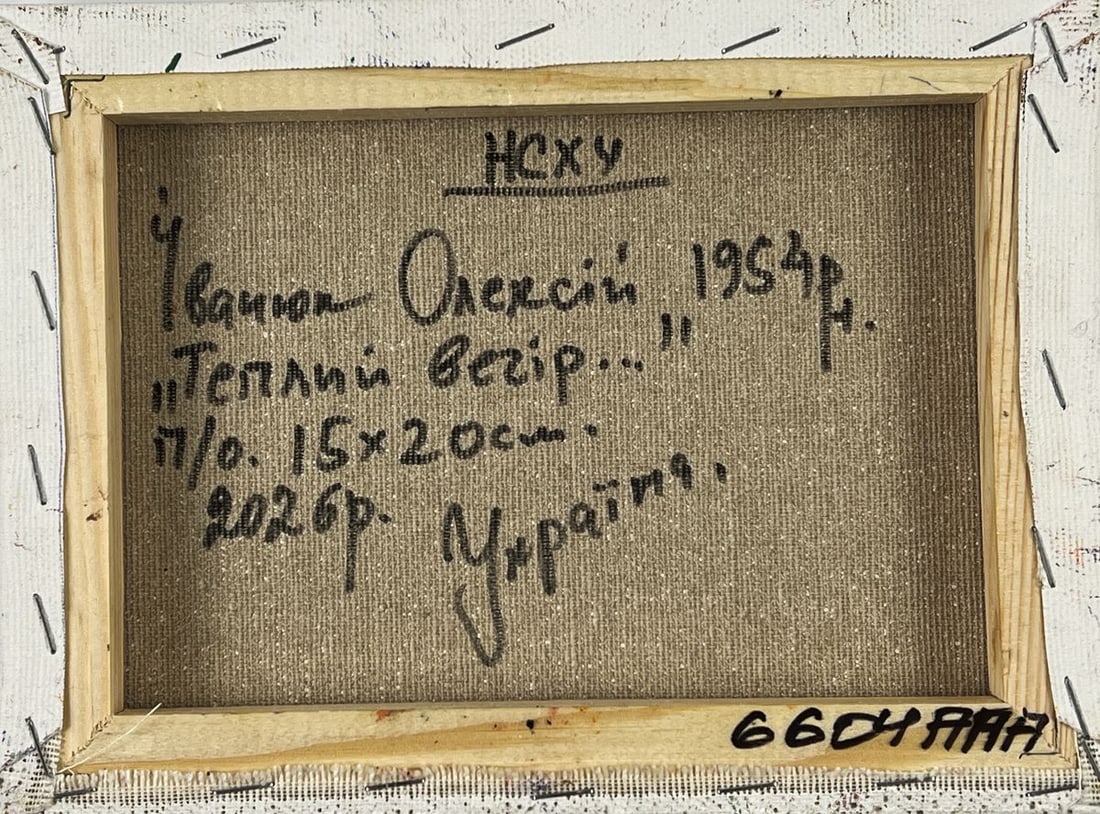 НСХУ
Іванюк Олексій 1954р.н.
„Теплий вечір..."
п/о. 15х20см.
2026р. Україна.
6604AAA